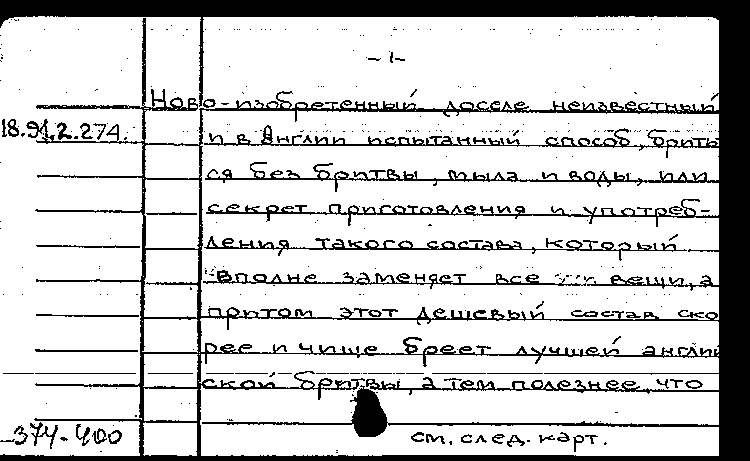 - 1 -
Ново-изобретенный доселе неизвестный
18.91.2.274. и в Англии испытанный способ, брить
ся без бритвы, мыла и воды, или
секрет приготовления и употреб-
ления такого состава, который
вполне заменяет все эти вещи, а
притом этот дешевый состав ско
рее и чище бреет лучшей англий
ской бритвы, а тем полезнее, что
374-400 см. след. карт.